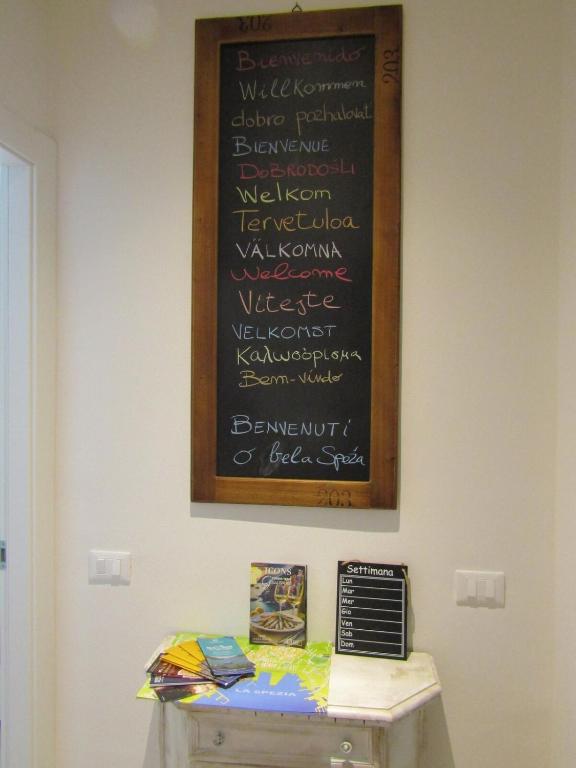 203
203
Bienvenido
Willkommen
dobro pozhalovat
BIENVENUE
DOBRODOŠLI
Welkom
Tervetuloa
VÄLKOMNA
Welcome
Vítejte
VELKOMST
Καλωσόρισμα
Bem-vindo
BENVENUTI
O bela Speza
203
ICONS
Settimana
Lun
Mar
Mer
Gio
Ven
Sab
Dom
LA SPEZIA